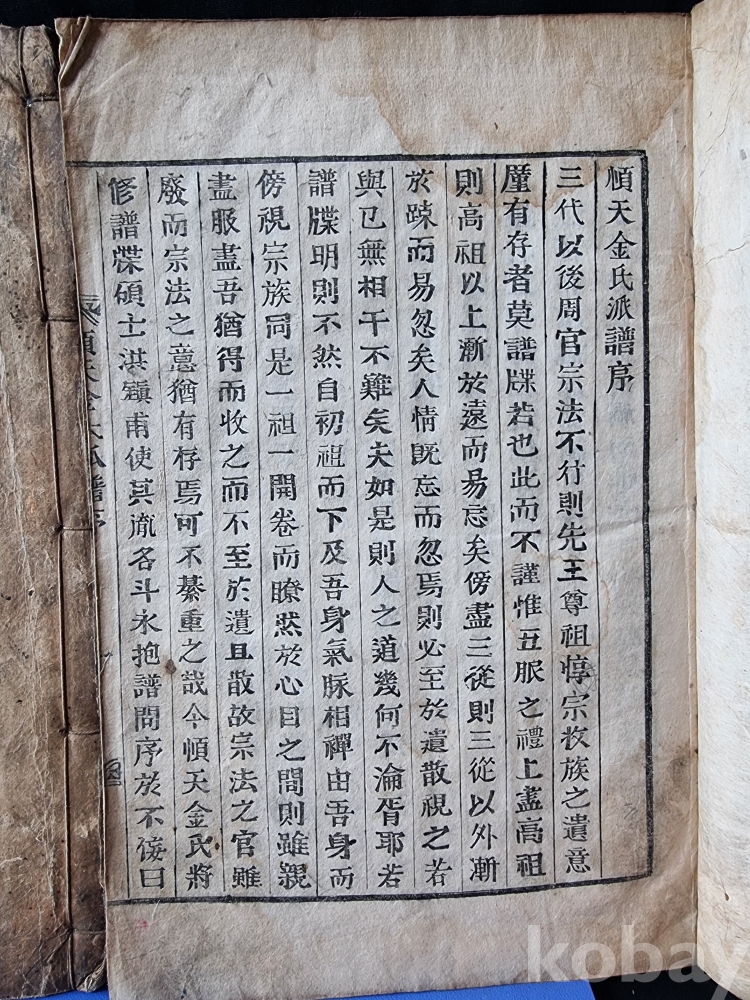 順天金氏派譜序
三代以後周官宗法不行則先王尊祖惇宗收族之遺意
厪有存者莫譜牒若也此而不謹惟五服之禮上盡高祖
則高祖以上漸於遠而易忘矣傍盡三從則三從以外漸
於踈而易忽矣人情旣忘而忽焉則必至於遺散視之若
與已無相干不難矣夫如是則人之道幾何不淪胥耶若
譜牒明則不然自初祖而下及吾身氣脉相禪由吾身而
傍視宗族同是一祖一開卷而瞭然於心目之間則雖親
盡服盡吾猶得而收之而不至於遺且散故宗法之官雖
廢而宗法之意猶有存焉可不綦重之哉今順天金氏將
修譜牒碩士洪鎭甫使其流名斗永抱譜問序於不侫曰
順天金氏派譜序
kobay